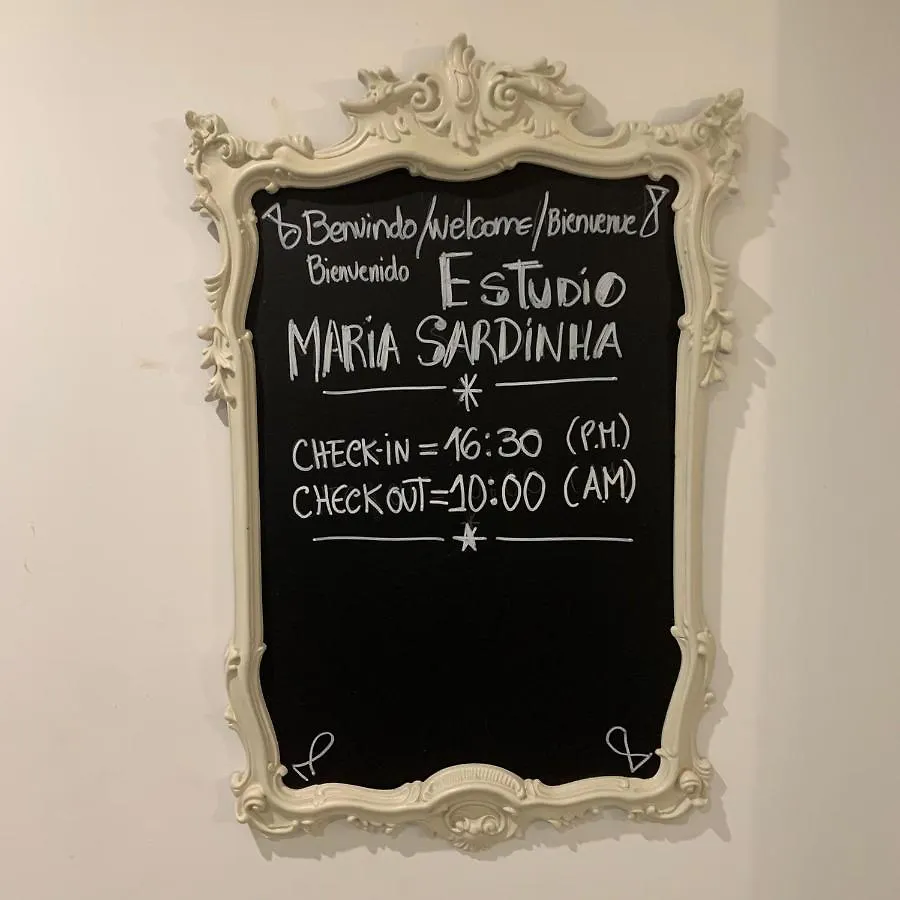 Benvindo/welcome/Bienvenue
Bienvenido ESTUDIO
MARIA SARDINHA
CHECK-IN = 16:30 (P.M.)
CHECK OUT = 10:00 (AM)